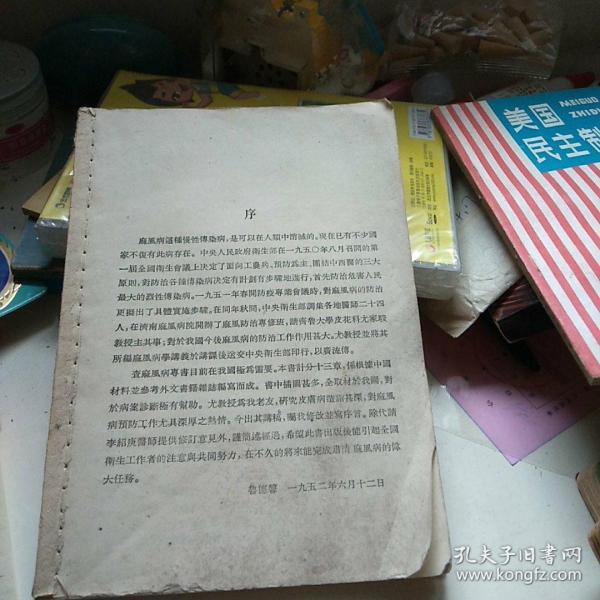 序
麻风病這種慢性傳染病，是可以在人類中消滅的。現在已有不少國
家不復有此病存在。中央人民政府衛生部在一九五〇年八月召開的第
一屆全國衛生會議上决定了面向工農兵、預防爲主、團結中西醫的三大
原則，對防治各種傳染病决定有計劃有步驟地進行，首先防治危害人民
最大的烈性傳染病。一九五一年春開防疫專業會議時，對麻風病的防治
更擬出了具體實施步驟。在同年秋間，中央衛生部調集各地醫師二十四
人，在濟南麻風病院開辦了麻風防治專修班，請齊魯大學皮花科尤家駿
教授主其事；對於我國今後麻風病的防治工作作用甚大。尤教授並將其
所編麻風病學講義於講課後送交中央衛生部印行，以廣流傳。
查麻風病專書目前在我國極爲需要。本書計分十三章，係根據中國
材料並參考外文書籍雜誌編寫而成。書中插圖甚多，全取材於我國，對
於病案診斷極有幫助。尤教授爲我老友，研究皮膚病造詣甚深，對麻風
病預防工作尤具深厚之熱情。今出其講稿，囑我修改並寫序言。除代請
李紹庚醫師提供修訂意見外，謹簡述經過，希望此書出版後能引起全國
衛生工作者的注意與共同努力，在不久的將來能完成肅清麻風病的偉
大任務。
魯德馨 一九五二年六月十二日
美国
民主
MEIGUO
孔夫子旧书网
www.kongfz.com